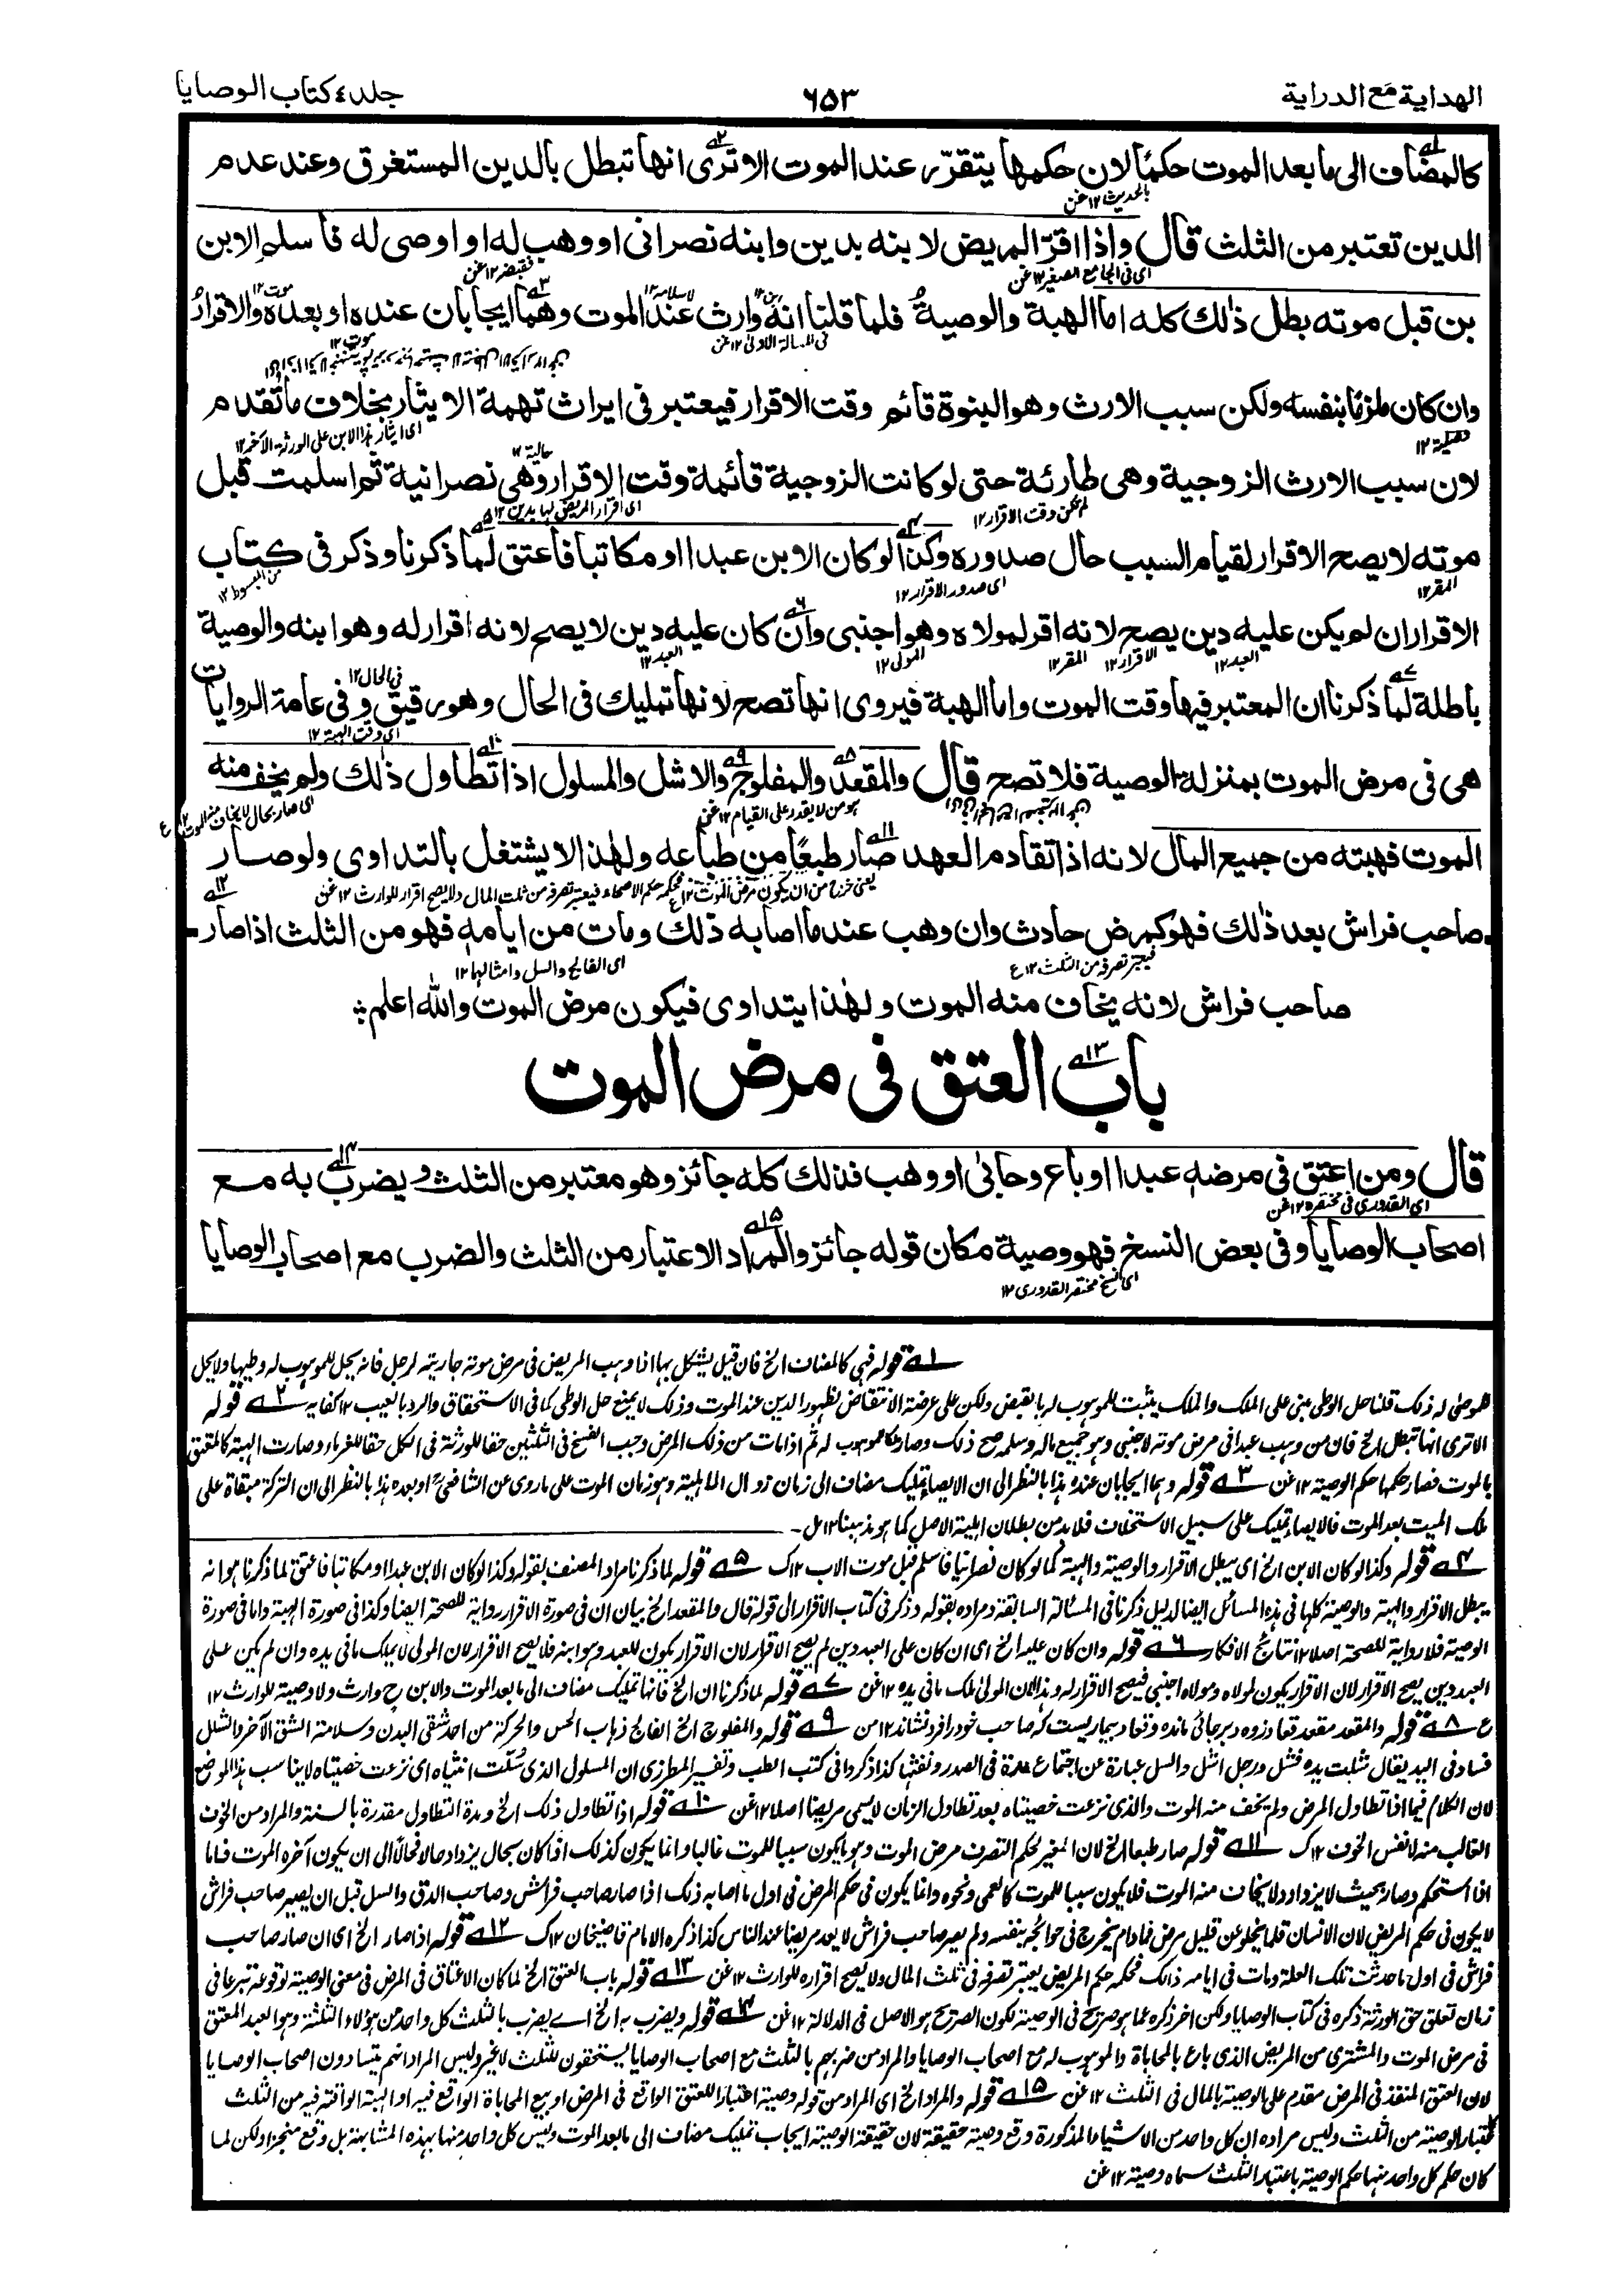 الهداية مع الدراية
٦٥٣
جلد ٤ كتاب الوصايا
كالمضاف الى ما بعد الموت حكمًا لان حكمها يتقرر عند الموت الا ترى انها تبطل بالدين المستغرق وعند عدم
الدين تعتبر من الثلث قال واذا اقرّ المريض لابنه بدين وابنه نصرانى او وهب له او اوصى له فاسلم الابن
بن قبل موته بطل ذلك كله اما الهبة والوصية فلما قلنا انه وارث عند الموت وهما ايجابان عنده او بعده والاقرار
وان كان ملزمًا بنفسه ولكن سبب الارث وهو البنوة قائم وقت الاقرار فيعتبر فى ايراث تهمة الايثار بخلاف ما تقدم
لان سبب الارث الزوجية وهى طارئة حتى لو كانت الزوجية قائمة وقت الاقرار وهى نصرانية ثم اسلمت قبل
موته لا يصح الاقرار لقيام السبب حال صدوره وكذا لو كان الابن عبدا او مكاتبا فاعتق لما ذكرنا وذكر فى كتاب
الاقرار ان لم يكن عليه دين يصح لانه اقر لمولاه وهو اجنبى وان كان عليه دين لا يصح لانه اقرار له وهو ابنه والوصية
باطلة لما ذكرنا ان المعتبر فيها وقت الموت واما الهبة فيروى انها تصح لانها تمليك فى الحال وهو رقيق وفى عامة الروايات
هى فى مرض الموت بمنزلة الوصية فلا تصح قال والمقعد والمفلوج والاشل والمسلول اذا تطاول ذلك ولم يخف منه
الموت فهبته من جميع المال لانه اذا تقادم العهد صار طبعًا من طباعه ولهذا لا يشتغل بالتداوى ولو صار
صاحب فراش بعد ذلك فهو كمرض حادث وان وهب عند ما اصابه ذلك ومات من ايامه فهو من الثلث اذا صار
صاحب فراش لانه يخاف منه الموت ولهذا يتداوى فيكون مرض الموت والله اعلم
باب العتق فى مرض الموت
قال ومن اعتق فى مرضه عبدا او باع وحابى او وهب فذلك كله جائز وهو معتبر من الثلث ويضرب به مع
اصحاب الوصايا وفى بعض النسخ فهو وصية مكان قوله جائز والمراد الاعتبار من الثلث والضرب مع اصحاب الوصايا
١ قوله فهى كالمضاف الخ فان قيل يشكل بما اذا وهب المريض فى مرض موته جاريته لرجل فانه يحل للموهوب له وطيها ولا يحل
للموصى له ذلك قلنا حل الوطى يبنى على الملك والملك يثبت للموهوب له بالقبض ولكن على عرضة الانتقاض لظهور الدين عند الموت وذلك لا يمنع حل الوطى كما فى الاستحقاق والرد بالعيب ١٢ كفايه ٢ قوله
الا ترى انها تبطل الخ فان من وهب عبدا فى مرض موته لاجنبى وهو جميع ماله وسلمه صح ذلك وصار ملكا للموهوب له ثم اذا مات من ذلك المرض وجب الفسخ فى الثلثين حقا للورثة فى الكل حقا للغرماء وصارت الهبة كالمتعلق
بالموت فصار حكمها حكم الوصية ١٢ عن ٣ قوله وهما ايجابان عنده هذا بالنظر الى ان الايصاء تمليك مضاف الى زمان زوال المالكية وهو زمان الموت على ما روى عن الشافعى او بعده هذا بالنظر الى ان التركة مبقاة على
ملك الميت بعد الموت فالايصاء تمليك على سبيل الاستخلاف فلا بد من بطلان اهلية الاصل كما هو مذهبنا ١٢ مل
٤ قوله وكذا لو كان الابن الخ اى يبطل الاقرار والوصية والهبة كما لو كان نصرانيا فاسلم قبل موت الاب ١٢ ك ٥ قوله لما ذكرنا مراد المصنف بقوله وكذا لو كان الابن عبدا او مكاتبا فاعتق لما ذكرنا هو انه
يبطل الاقرار والهبة والوصية كلها فى هذه المسائل ايضا لدليل ذكرنا فى المسألة السابقة ومراده بقوله وذكر فى كتاب الاقرار الى قوله قال والمقعد الخ بيان ان فى صورة الاقرار رواية للصحة ايضا وكذا فى صورة الهبة واما فى صورة
الوصية فلا رواية للصحة اصلا ١٢ نتائج الافكار ٦ قوله وان كان عليه الخ اى ان كان على العبد دين لم يصح الاقرار لان الاقرار يكون للعبد وهو ابنه فلا يصح الاقرار لان المولى لا يملك ما فى يده وان لم يكن على
العبد دين يصح الاقرار لان الاقرار يكون لمولاه ومولاه اجنبى فيصح الاقرار له وهذا لان المولى ملك ما فى يده ١٢ عن ٧ قوله لما ذكرنا ان الخ فانها تمليك مضاف الى ما بعد الموت والابن ح وارث ولا وصية للوارث ١٢
ع ٨ قوله والمقعد مقعد قعاد زده و برجائى مانده وقعاد بيماريست كه صاحب خود را فرو نشاند ١٢ من ٩ قوله والمفلوج الخ الفالج ذهاب الحس والحركة من احد شقى البدن وسلامة الشق الآخر والشلل
فساد فى اليد يقال شلت يده فشل ورجل اشل والسل عبارة عن اجتماع المدة فى الصدر ونفثها كذا ذكروا فى كتب الطب وتفسير المطرزى ان المسلول الذى سلت انثياه اى نزعت خصيتاه لا يناسب هذا الموضع
لان الكلام فيما اذا تطاول المرض ولم يخف منه الموت والذى نزعت خصيتاه بعد تطاول الزمان لا يسمى مريضا اصلا ١٢ عن ١٠ قوله اذا تطاول ذلك الخ ومدة التطاول مقدرة بالسنة والمراد من الخوف
الغالب منه لا نفس الخوف ١٢ ك ١١ قوله صار طبعا الخ لان المغير لحكم التصرف مرض الموت وهو ما يكون سببا للموت غالبا وانما يكون كذلك اذا كان بحال يزداد حالا فحالا الى ان يكون آخره الموت فاما
اذا استحكم وصار بحيث لا يزداد ولا يخاف منه الموت فلا يكون سببا للموت كالعمى ونحوه وانما يكون فى حكم المرض فى اول ما اصابه ذلك اذا صار صاحب فراش وصاحب الدق والسل قبل ان يصير صاحب فراش
لا يكون فى حكم المريض لان الانسان قلما يخلو عن قليل مرض فما دام يخرج فى حوائجه بنفسه ولم يصر صاحب فراش لا يعد مريضا عند الناس كذا ذكره الامام قاضيخان ١٢ ك ١٢ قوله اذا صار الخ اى ان صار صاحب
فراش فى اول ما حدثت تلك العلة ومات فى ايامه ذلك فحكمه حكم المريض يعتبر تصرفه فى ثلث المال ولا يصح اقراره للوارث ١٢ عن ١٣ قوله باب العتق الخ لما كان الاعتاق فى المرض فى معنى الوصية لوقوعه تبرعا فى
زمان تعلق حق الورثة ذكره فى كتاب الوصايا ولكن اخر ذكره عما هو صريح فى الوصية لكون الصريح هو الاصل فى الدلالة ١٢ عن ١٤ قوله ويضرب به الخ اے يضرب بالثلث كل واحد من هؤلاء الثلثة وهو العبد المعتق
فى مرض الموت والمشترى من المريض الذى باع بالمحاباة والموهوب له مع اصحاب الوصايا والمراد من ضربهم بالثلث مع اصحاب الوصايا يستحقون للثلث لا غير وليس المراد انهم يتساوون اصحاب الوصايا
لان العتق المنفذ فى المرض مقدم على الوصية بالمال فى الثلث ١٢ عن ١٥ قوله والمراد الخ اى المراد من قوله وصية اعتبارا للعتق الواقع فى المرض او بيع المحاباة الواقع فيه او الهبة الواقعة فيه من الثلث
كاعتبار الوصية من الثلث وليس مراده ان كل واحد من الاشياء المذكورة وقع وصية حقيقة لان حقيقة الوصية ايجاب تمليك مضاف الى ما بعد الموت وليس كل واحد منها بهذه المشابهة بل وقع منجزا ولكن لما
كان حكم كل واحد منها حكم الوصية باعتبار الثلث سماه وصية ١٢ عن